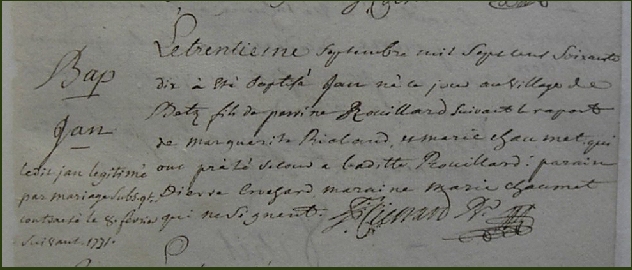 Bap
Jan
ledit jan legitimé
par mariage subsqt.
contracté le 8. fevrier
suivant 1771.
Le trentieme septembre mil sept cent soixante
dix à été Baptisé Jan né ce jour au village de
Betz fils de perrine Rouillard suivant le raport
de marguerite et marie chaumet qui
ont prété secour a laditte Rouillard: parain
Pierre maraine marie chaumet
qui ne signent.